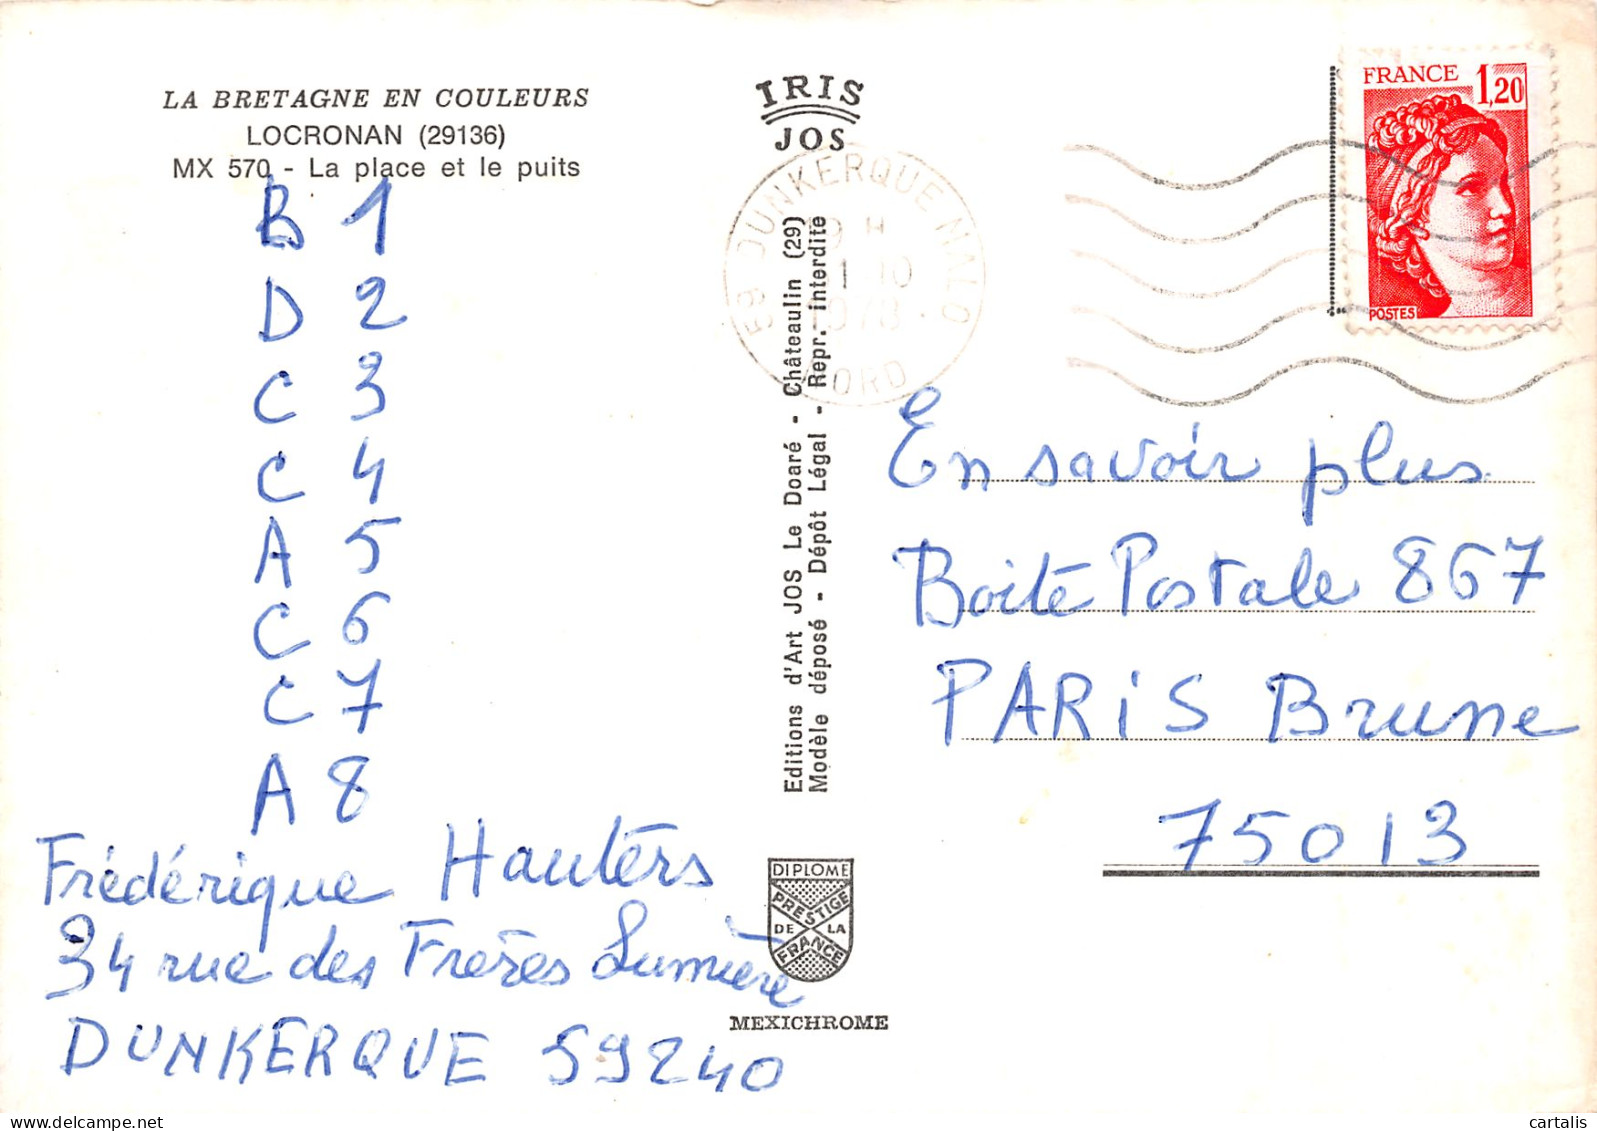 LA BRETAGNE EN COULEURS
LOCRONAN (29136)
MX 570 - La place et le puits
B 1
D 2
C 3
C 4
A 5
C 6
C 7
A 8
Frédérique Hauters
34 rue des Frères Lumière
DUNKERQUE 59240
IRIS
JOS
59 DUNKERQUE MALO
H
1 10
1978
NORD
Editions d'Art JOS Le Doaré - Châteaulin (29)
Modèle déposé - Dépôt Légal - Repr. interdite
DIPLOME
PRESTIGE
DE LA
FRANCE
MEXICHROME
FRANCE 1,20
POSTES
En savoir plus
Boite Postale 867
PARIS Brune
75013
cartalis